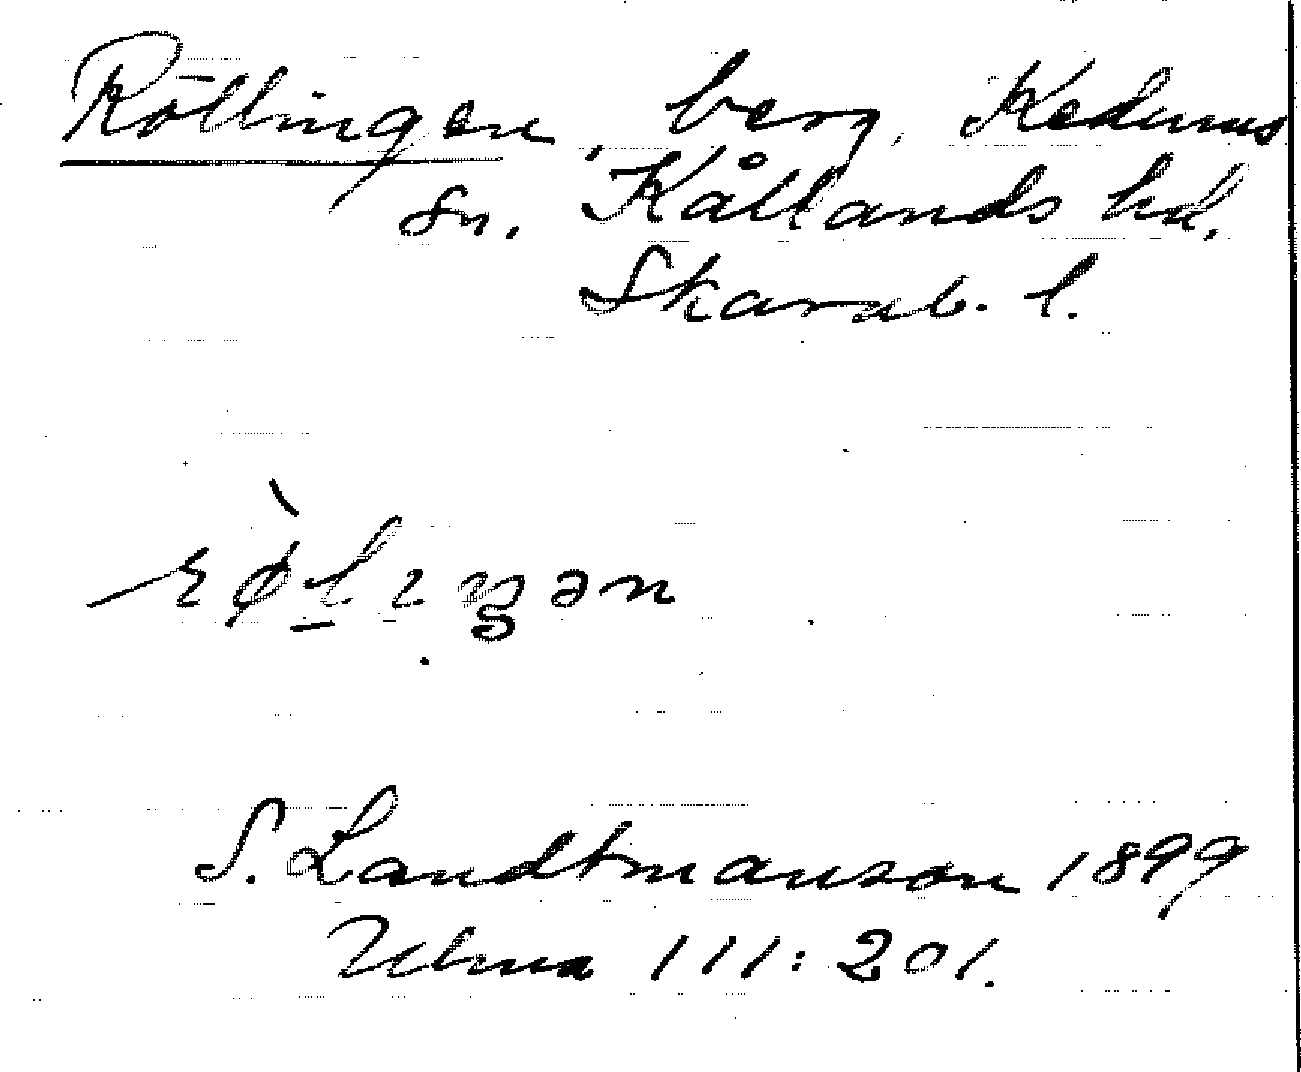 Röllingen, berg, Kedums
sn. Kållands hd,
Skarab. l.
S. Landtmanson 1899
Ulma 111:201.